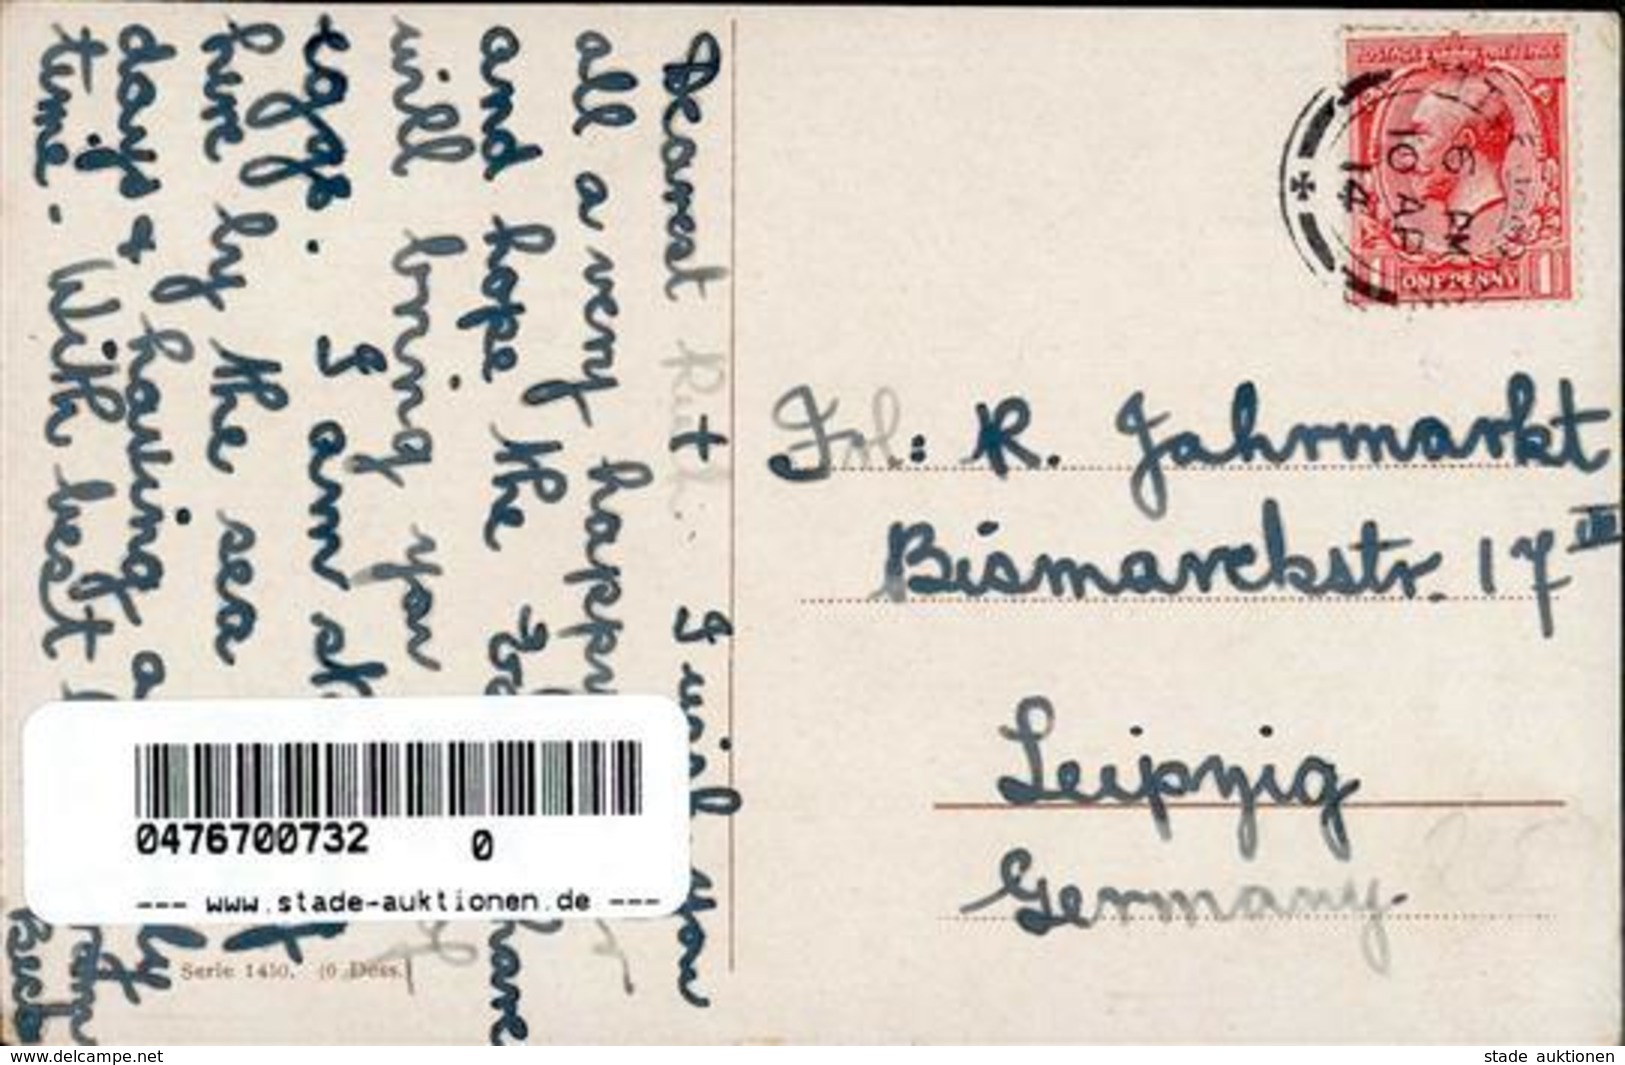 Dearest Ruth. I wish you
all a very happy
and hope the have
will bring you
eggs. I am st
here by the sea
days & having a
time. With best
Frl: R. Jahrmarkt
Bismarckstr. 17 III
Leipzig
Germany.
POSTAGE REVENUE
ONE PENNY
1 1
6 PM
10 AP
14
0476700732 0
--- www.stade-auktionen.de ---
Serie 1450. (6 Dess.)
www.delcampe.net
stade auktionen